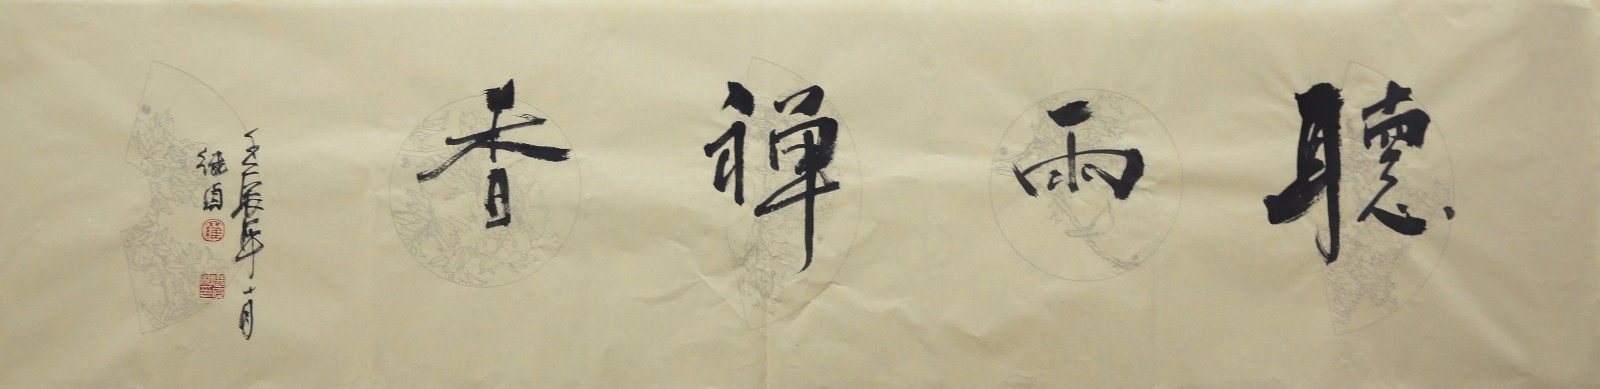 聽雨禪香
壬辰年十月
继贞